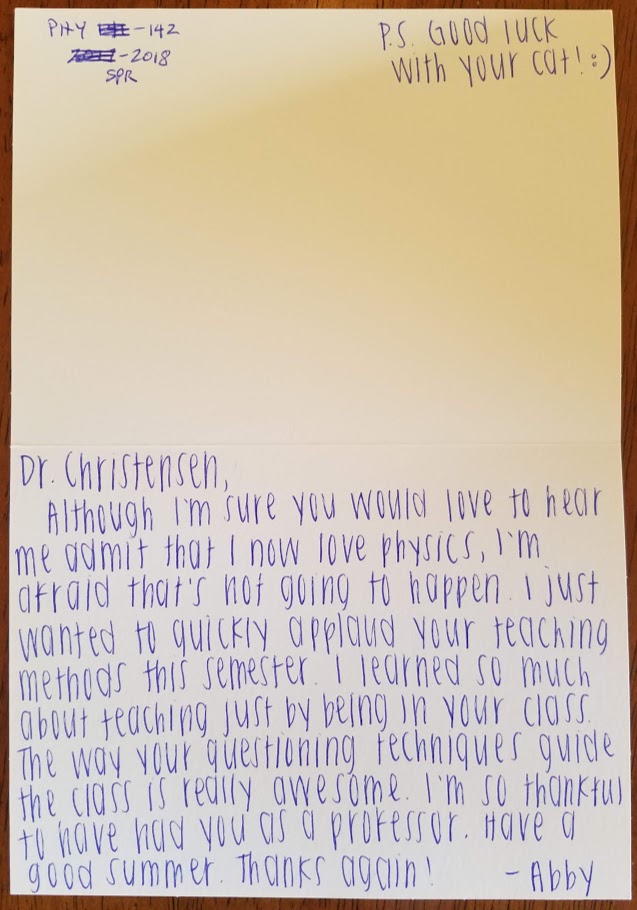 PHY -142
-2018
SPR
P.S. Good luck
with your cat! :)
Dr. Christensen,
Although I'm sure you would love to hear
me admit that I now love physics, I'm
afraid that's not going to happen. I just
wanted to quickly applaud your teaching
methods this semester. I learned so much
about teaching just by being in your class.
The way your questioning techniques guide
the class is really awesome. I'm so thankful
to have had you as a professor. Have a
good summer. Thanks again! - Abby